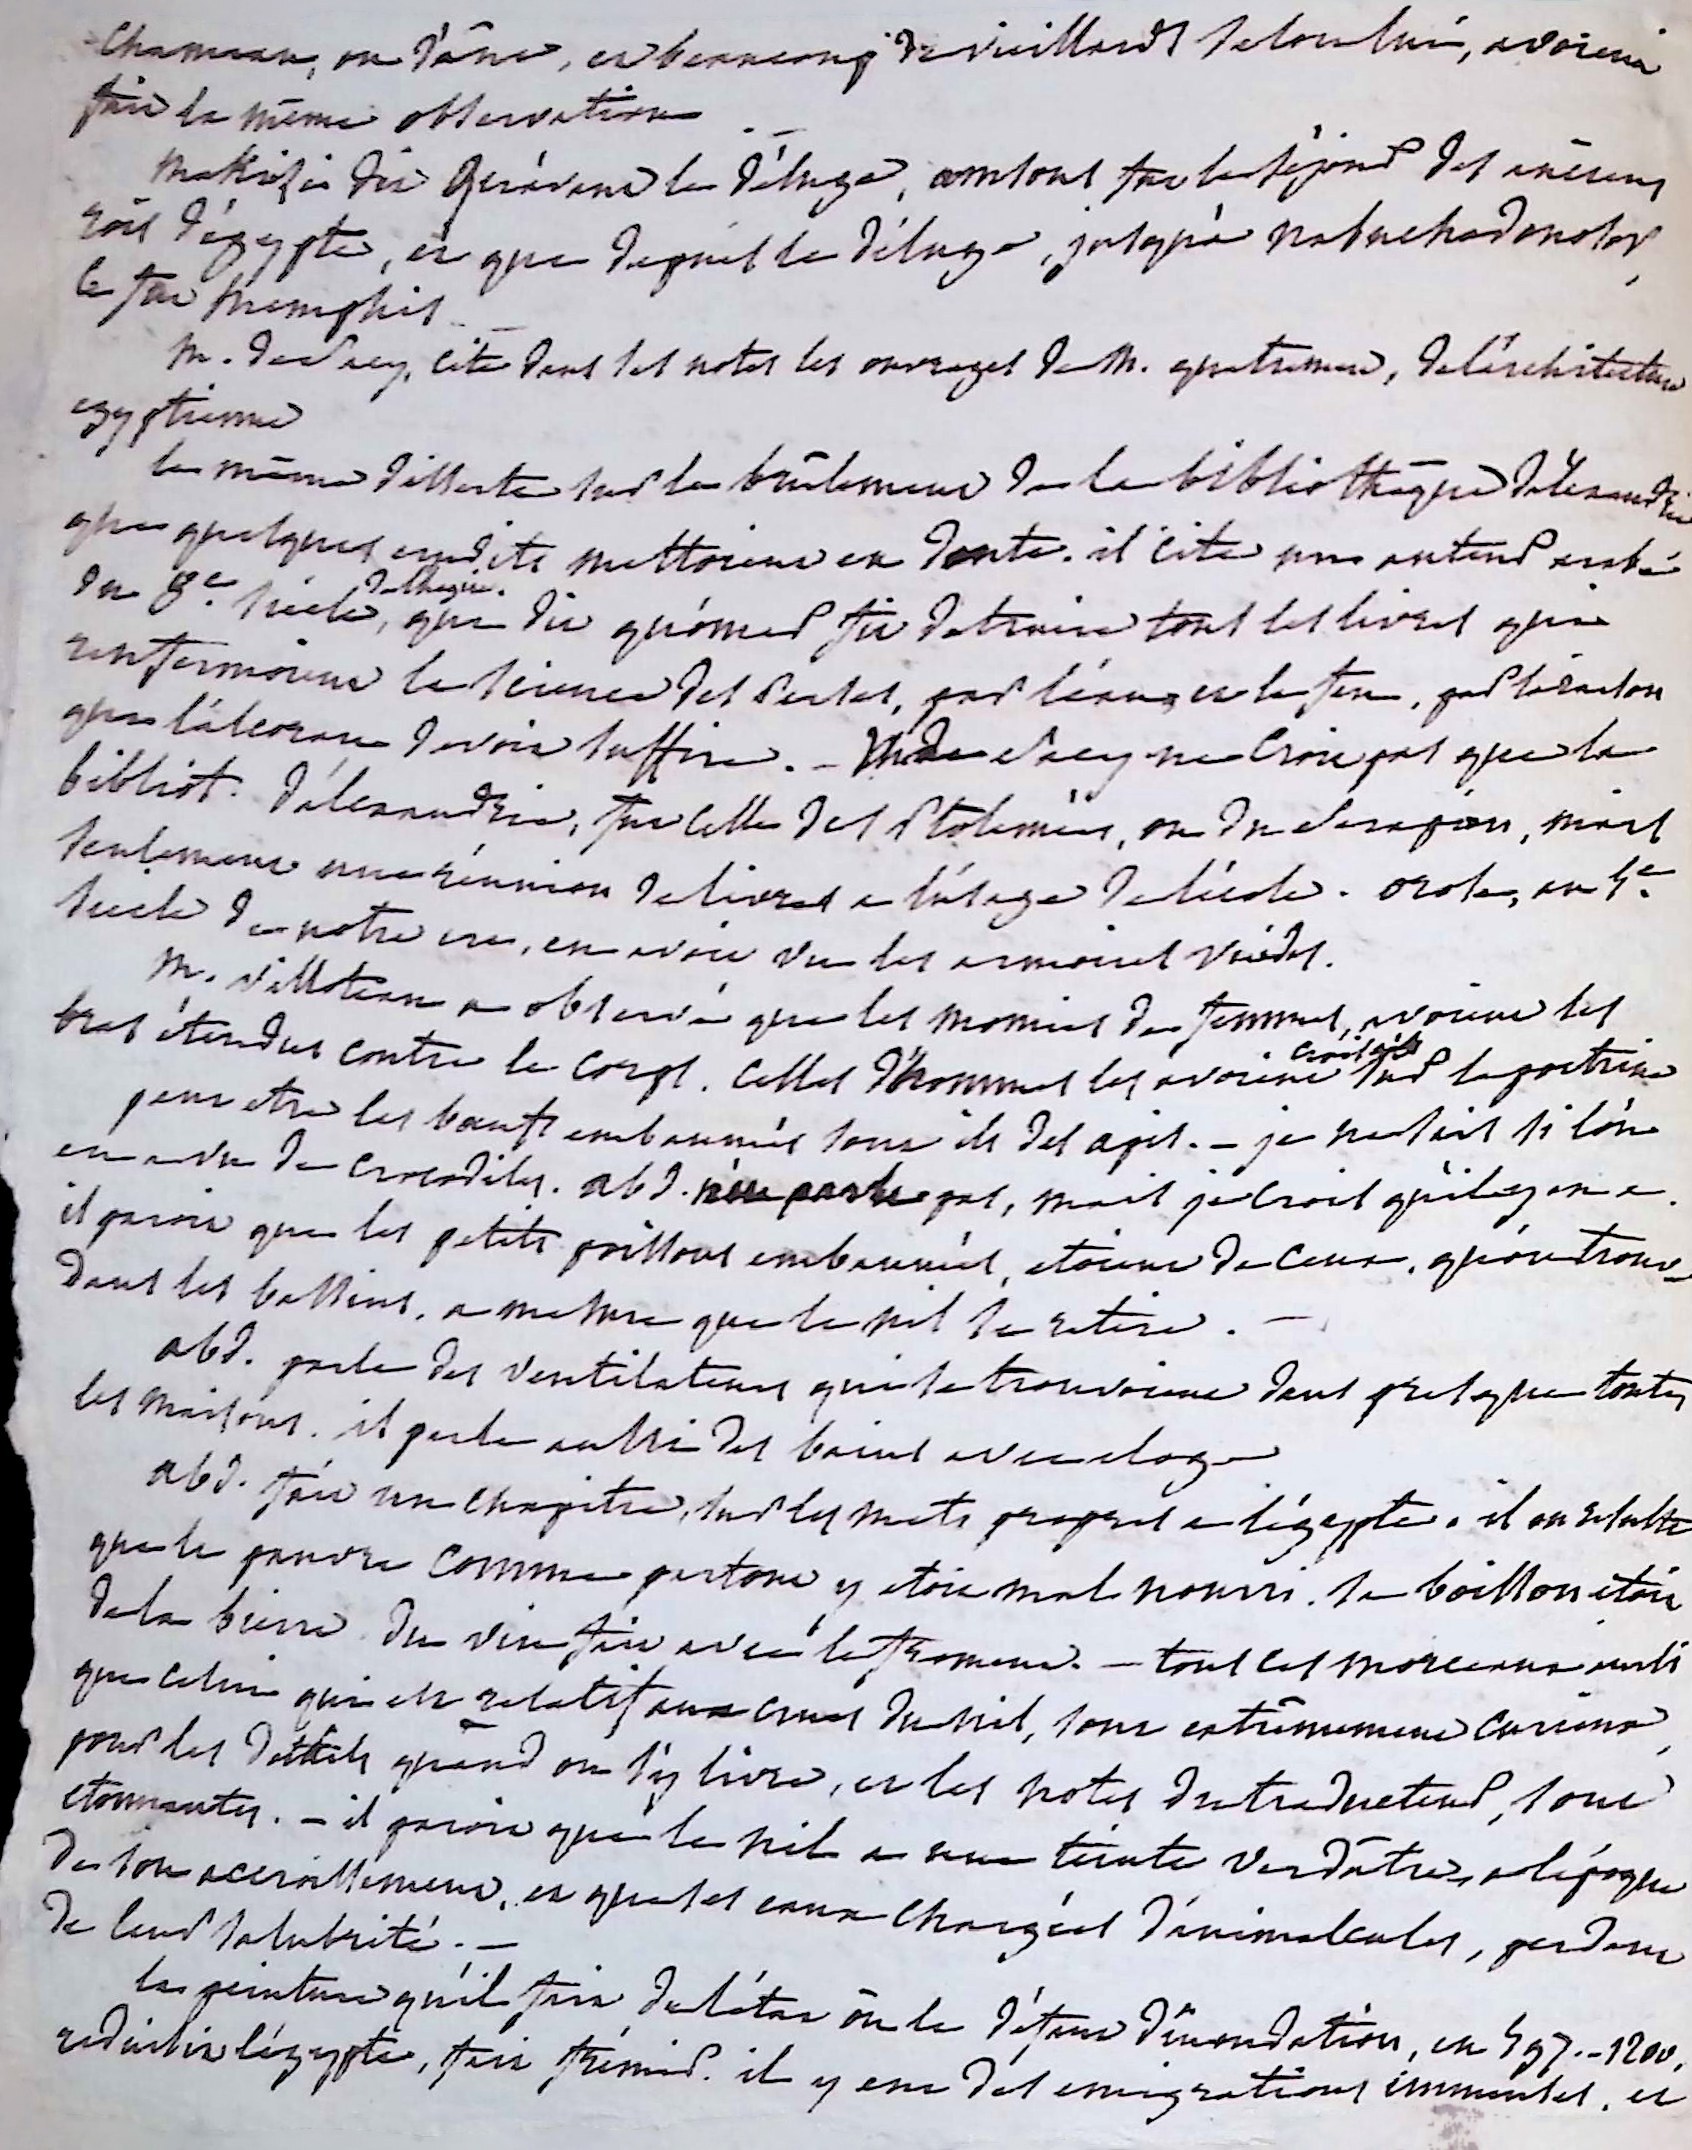 chameau, ou d'âne, et beaucoup de vieillards selon lui, avoient
fait la même observation
Makrisi dit qu'avant le déluge, amsous fut le séjour des anciens
rois d'égypte, et que depuis le déluge, jusqu'à nabuchodonosor,
ce fut memphis. —
M. de Sacy, cite dans ses notes les ouvrages de M. quatremere, de l'architecture
egyptienne
le même disserte sur le brûlement de la bibliothèque d'alexandrie
que quelques erudits mettoient en doute. il cite un auteur arabe
du 8.e siècle, de l'hegire. qui dit qu'omar fit detruire tous les livres qui
renfermoient la science des Perses, par l'eau, et le feu, par la raison
que l'alcoran devoit suffire. — M. de Sacy ne croit pas que la
bibliot. d'alexandrie, fut celle des Ptolemées, ou du Serapion, mais
seulement une réunion de livres a l'usage de l'école. orose, au 5.e
siècle de notre ere, en avoit vu les armoires vuides.
M. villoteau a observé que les momies de femmes, avoient les
bras étendus contre le corps. celles d'hommes les avoient croisés sur la poitrine
peut etre les bœufs embaumés sont ils des apis. — je ne sais si l'on
en a vu de crocodiles. abd. n'en parle pas, mais je crois qu'il y en a.
il paroit que les petits poissons embaumés, etoient de ceux, qu'on trouve
dans les bassins, a mesure que le nil se retire. —
abd. parle des ventilateurs qui se trouvoient dans presque toutes
les maisons. il parle aussi des bains avec eloge
abd. fait un chapitre, sur les mets propres a l'égypte. il en resulte
que le pauvre comme partout y etoit mal nourri. sa boisson etoit
de la bierre du vin fait avec le froment. — tous ces morceaux aussi
que celui qui est relatif aux crues du nil, sont extrêmement curieux,
pour les détails quand on s'y livre, et les notes du traducteur, sont
etonnantes. — il paroit que le nil a une teinte verdâtre, a l'époque
de son accroissement, et que ses eaux chargées d'animalcules, perdent
de leur salubrité. —
la peinture qu'il fait de l'état où le défaut d'inondation, en 597. – 1200,
reduisit l'égypte, fait frémir. il y eut des emigrations immenses. et